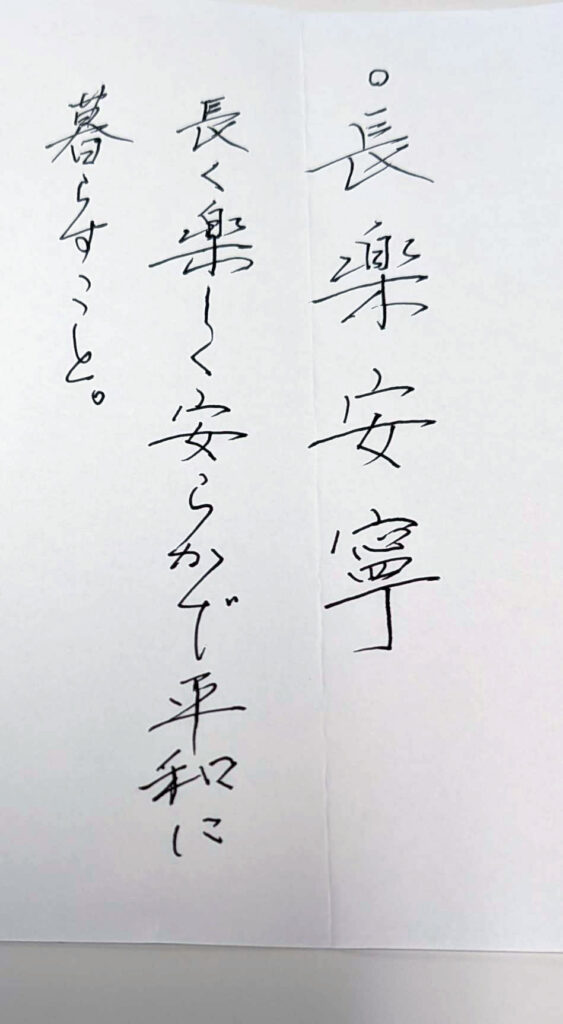 。長楽安寧
長く楽しく安らかで平和に
暮らすこと。